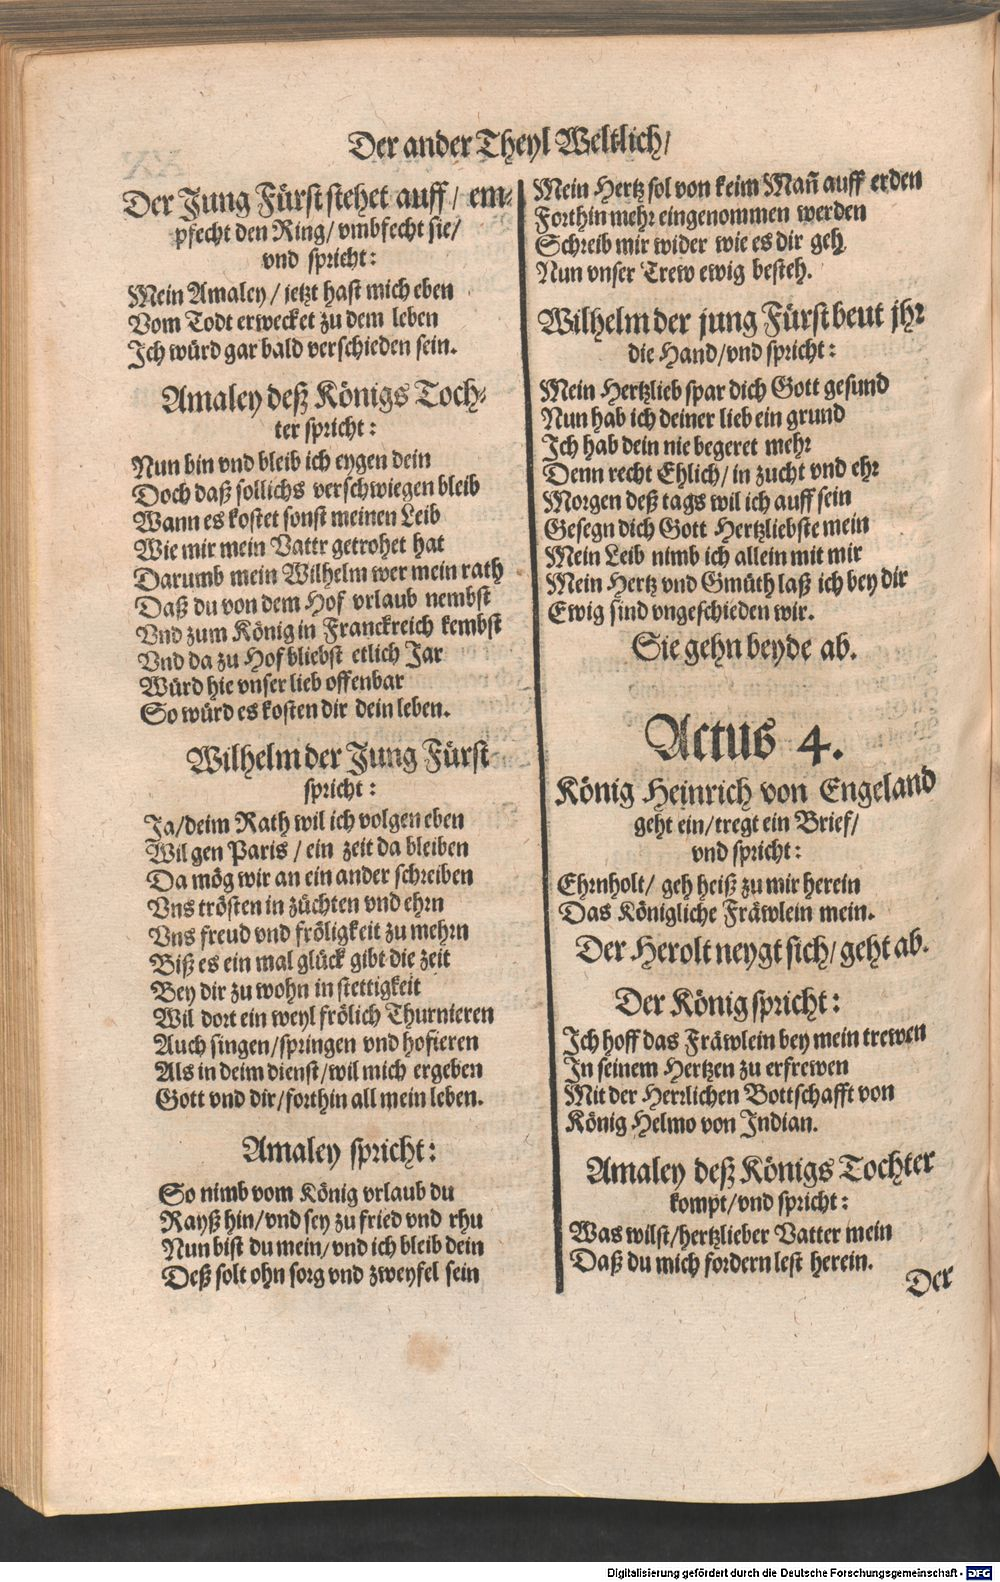 Der ander Theyl Weltlich/
Der Jung Fürst stehet auff/ em-
pfecht den Ring/ vmbfecht sie/
vnd spricht:
Mein Amaley/ jetzt hast mich eben
Vom Todt erwecket zu dem leben
Ich würd gar bald verschieden sein.
Amaley deß Königs Toch-
ter spricht:
Nun bin vnd bleib ich eygen dein
Doch daß sollichs verschwiegen bleib
Wann es kostet sonst meinen Leib
Wie mir mein Vattr getrohet hat
Darumb mein Wilhelm wer mein rath
Daß du von dem Hof vrlaub nembst
Vnd zum König in Franckreich kembst
Vnd da zu Hof bliebst etlich Jar
Würd hie vnser lieb offenbar
So würd es kosten dir dein leben.
Wilhelm der Jung Fürst
spricht:
Ja/ deim Rath wil ich volgen eben
Wil gen Paris/ ein zeit da bleiben
Da mög wir an ein ander schreiben
Vns trösten in züchten vnd ehrn
Vns freud vnd fröligkeit zu mehrn
Biß es ein mal glück gibt die zeit
Bey dir zu wohn in stettigkeit
Wil dort ein weyl frölich Thurnieren
Auch singen/ springen vnd hofieren
Als in deim dienst/ wil mich ergeben
Gott vnd dir/ forthin all mein leben.
Amaley spricht:
So nimb vom König vrlaub du
Rayß hin/ vnd sey zu fried vnd rhu
Nun bist du mein/ vnd ich bleib dein
Deß solt ohn sorg vnd zweyfel sein
Mein Hertz sol von keim Mañ auff erden
Forthin mehr eingenommen werden
Schreib mir wider wie es dir geh
Nun vnser Trew ewig besteh.
Wilhelm der jung Fürst beut jhr
die Hand/ vnd spricht:
Mein Hertzlieb spar dich Gott gesund
Nun hab ich deiner lieb ein grund
Ich hab dein nie begeret mehr
Denn recht Ehlich/ in zucht vnd ehr
Morgen deß tags wil ich auff sein
Gesegn dich Gott Hertzliebste mein
Mein Leib nimb ich allein mit mir
Mein Hertz vnd Gmüth laß ich bey dir
Ewig sind vngeschieden wir.
Sie gehn beyde ab.
Actus 4.
König Heinrich von Engeland
geht ein/ tregt ein Brief/
vnd spricht:
Ehrnholt/ geh heiß zu mir herein
Das Königliche Fräwlein mein.
Der Herolt neygt sich/ geht ab.
Der König spricht:
Ich hoff das Fräwlein bey mein trewen
In seinem Hertzen zu erfrewen
Mit der Herrlichen Bottschafft von
König Helmo von Indian.
Amaley deß Königs Tochter
kompt/ vnd spricht:
Was wilst/ hertzlieber Vatter mein
Daß du mich fordern lest herein.
Der
Digitalisierung gefördert durch die Deutsche Forschungsgemeinschaft - DFG